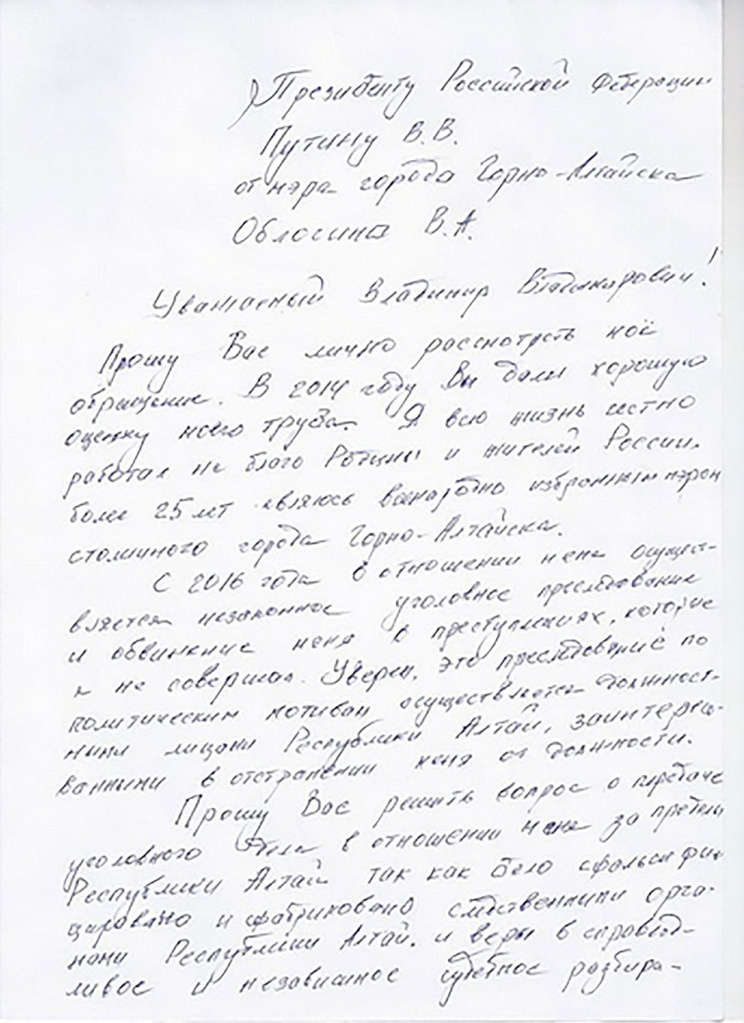 Президенту Российской Федерации
Путину В.В.
от мэра города Горно-Алтайска
Облогина В.А.
Уважаемый Владимир Владимирович!
Прошу Вас лично рассмотреть моё
обращение. В 2014 году Вы дали хорошую
оценку моего труда. Я всю жизнь честно
работал на благо Родины и жителей России.
более 25 лет являюсь всенародно избранным мэром
столичного города Горно-Алтайска.
С 2016 года в отношении меня осущест-
вляется незаконное уголовное преследование
и обвинение меня в преступлениях, которые
я не совершал. Уверен, это преследование по
политическим мотивам осуществляется должност-
ными лицами Республики Алтай, заинтересо-
ванными в отстранении меня от должности.
Прошу Вас решить вопрос о передаче
уголовного дела в отношении меня за пределы
Республики Алтай так как дело сфальсифи-
цировано и сфабриковано следственными орга-
нами Республики Алтай. и верю в справед-
ливое и независимое судебное разбира-